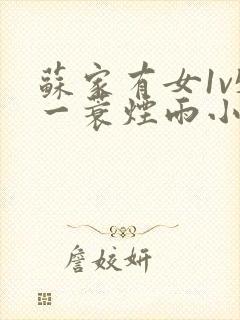 蘇家有女1v
一蓑煙雨小
詹姣妍